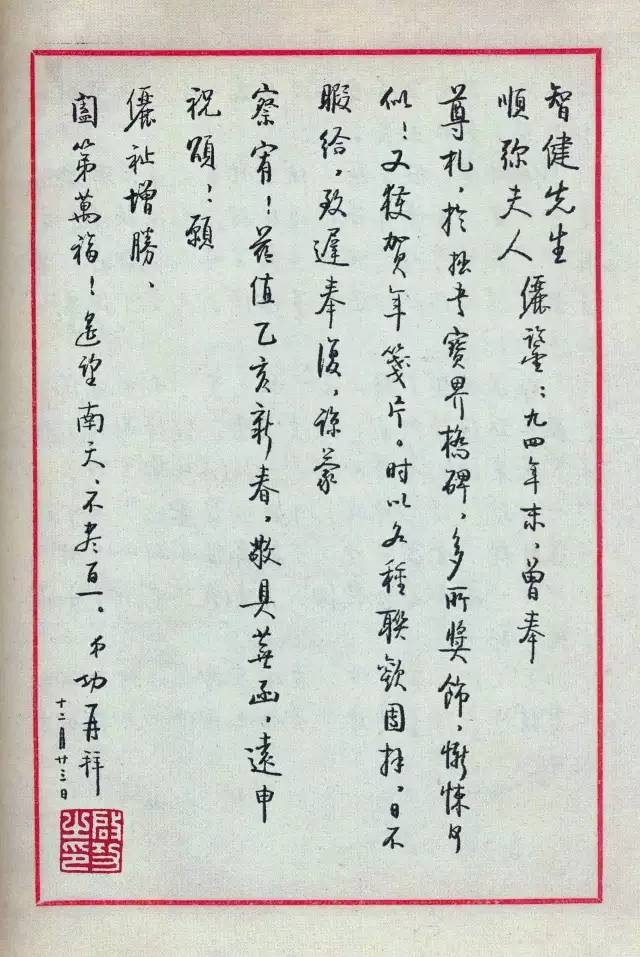 智健先生
順弥夫人 儷鑒：九四年末，曾奉
尊札，於拙書寶界橋碑，多所獎飾，慚悚何
似！又獲賀年箋片。时以各種聯歡困擾，日不
暇给，致遲奉復，諒蒙
察宥！兹值乙亥新春，敬具蕪函，遠申
祝頌：願
儷祉增勝、
闔第萬福！遙望南天、不尽百一。弟功再拜
十二月廿三日
啟功之印